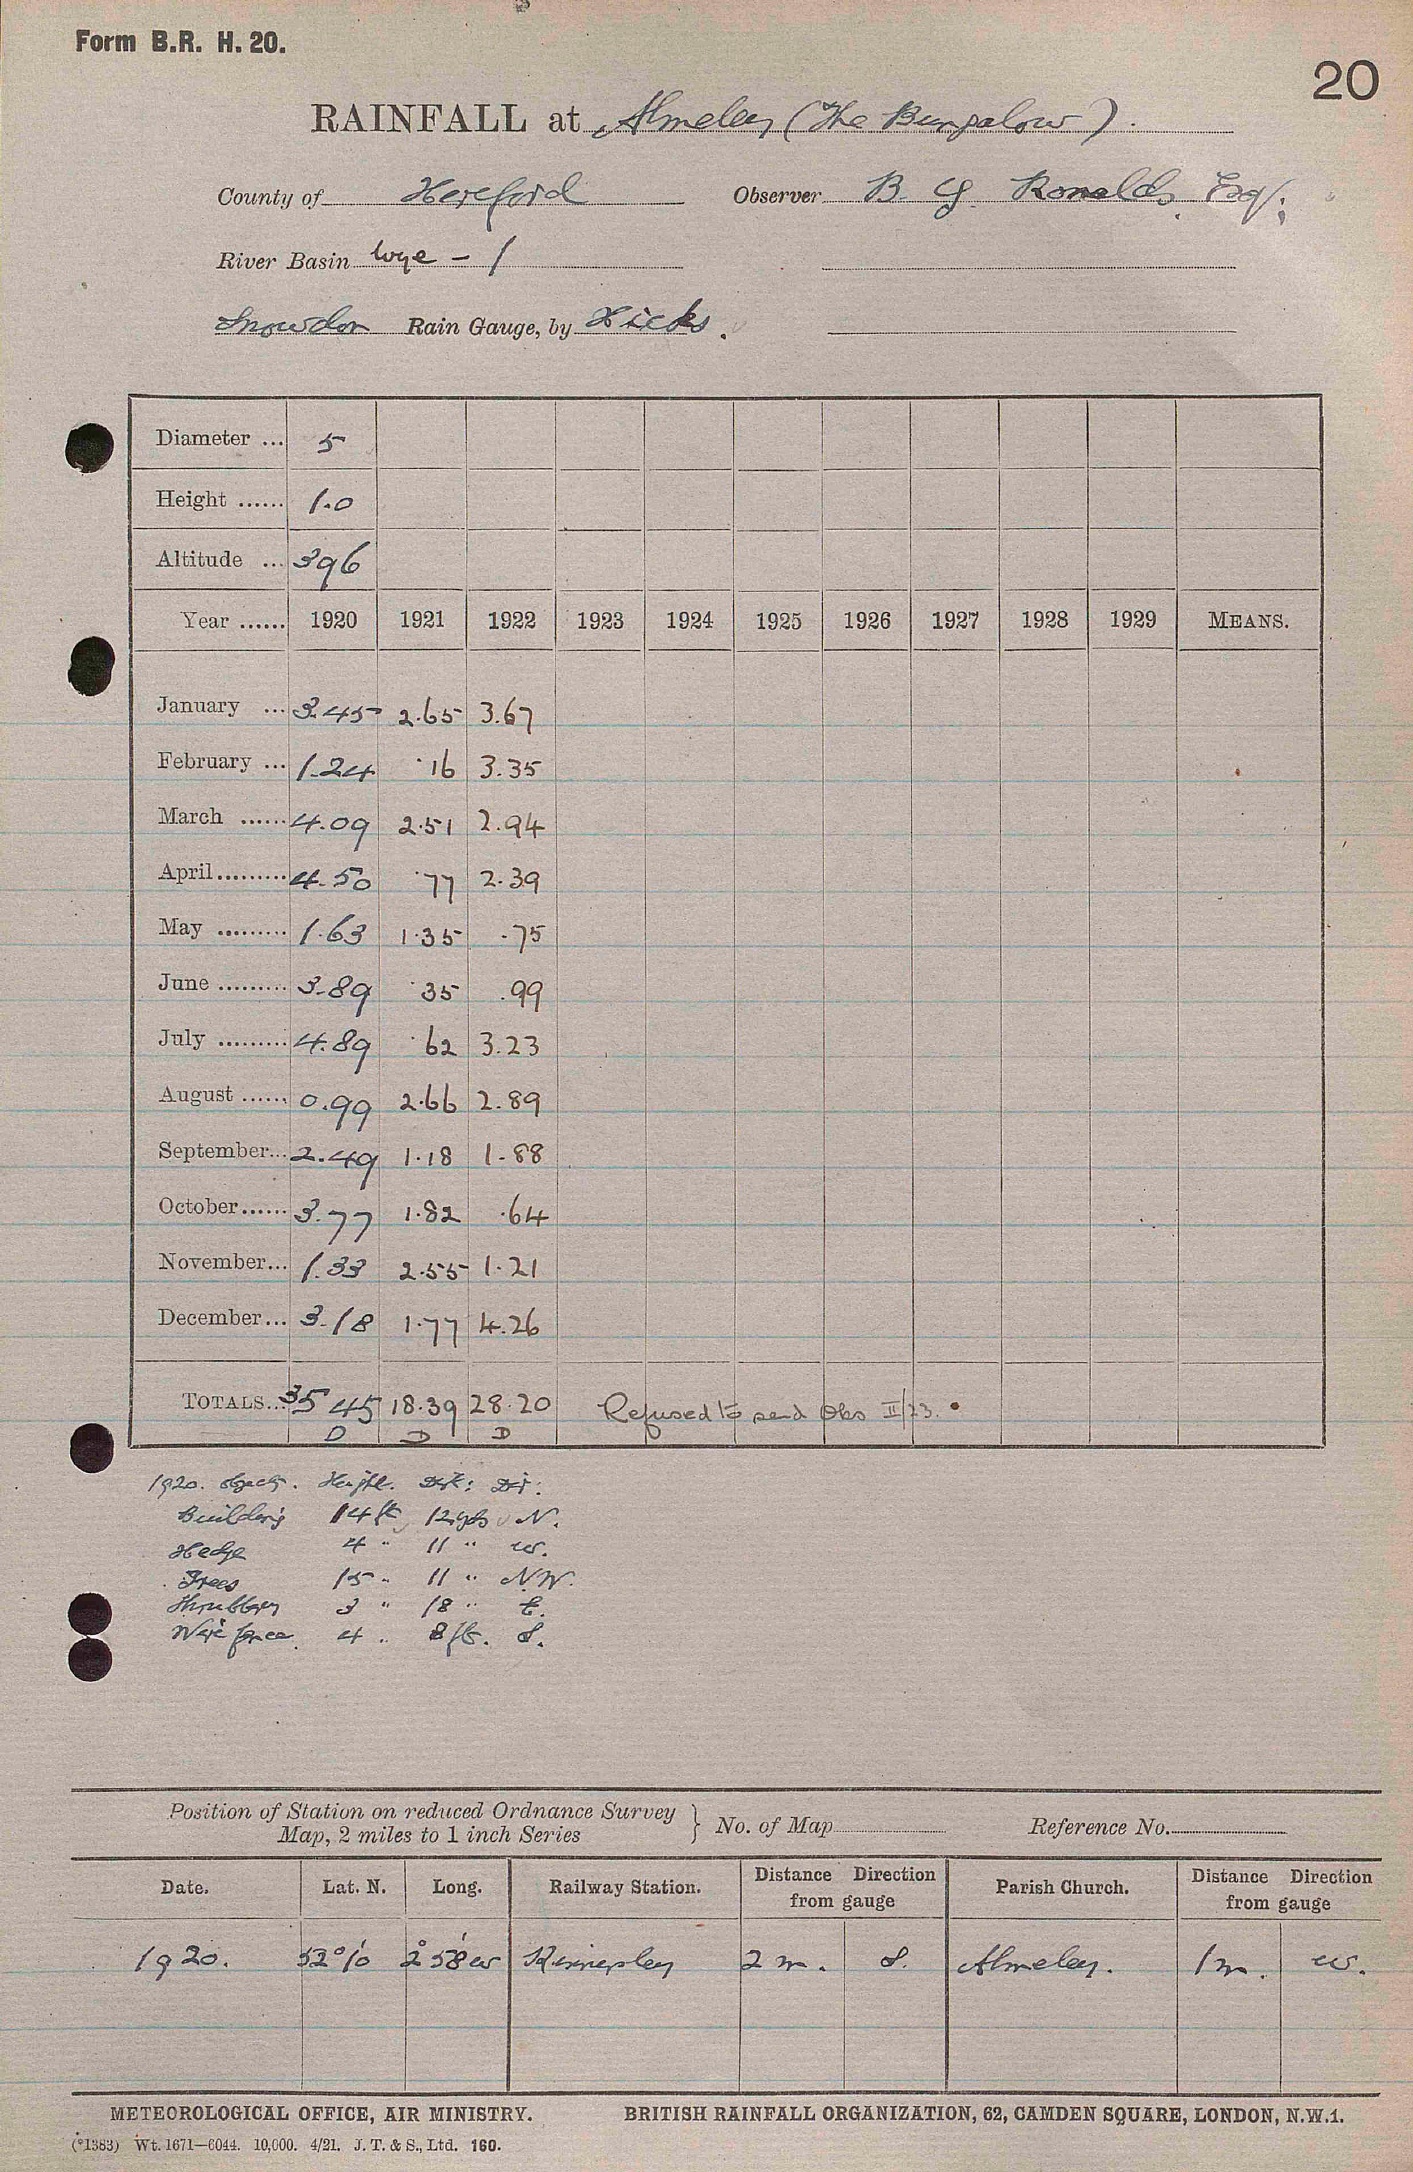 Form B.R. H. 20.
20
RAINFALL at Almeley (The Bungalow).
County of Hereford Observer B. G. Ronalds, Esq.
River Basin Wye - 1
Snowdon Rain Gauge, by Hicks.
Diameter ... 5
Height ...... 1.0
Altitude ... 396
Year ...... 1920 1921 1922 1923 1924 1925 1926 1927 1928 1929 MEANS.
January ... 3.45 2.65 3.67
February ... 1.24 .16 3.35
March ...... 4.09 2.51 2.94
April ......... 4.50 .77 2.39
May ......... 1.63 1.35 .75
June ......... 3.89 .35 .99
July ......... 4.89 .62 3.23
August ...... 0.99 2.66 2.89
September... 2.49 1.18 1.88
October ...... 3.77 1.82 .64
November... 1.33 2.55 1.21
December... 3.18 1.77 4.26
TOTALS... 35 45 18.39 28.20 Refused to send Obs II/23.
D D D
1920. Objects. Height. Dist: Dir:
Buildings 14 ft 12 yds N.
Hedge 4 " 11 " W.
Trees 15 " 11 " NW.
Shrubbery 3 " 18 " E.
Wire fence 4 " 8 ft. S.
Position of Station on reduced Ordnance Survey
Map, 2 miles to 1 inch Series } No. of Map Reference No.
Date. Lat. N. Long. Railway Station. Distance Direction from gauge Parish Church. Distance Direction from gauge
1920. 52° 10' 2° 58' W Kinnersley 2 m. S. Almeley. 1 m. W.
METEOROLOGICAL OFFICE, AIR MINISTRY. BRITISH RAINFALL ORGANIZATION, 62, CAMDEN SQUARE, LONDON, N.W.1.
(*1383) Wt. 1671—6044. 10,000. 4/21. J. T. & S., Ltd. 160.